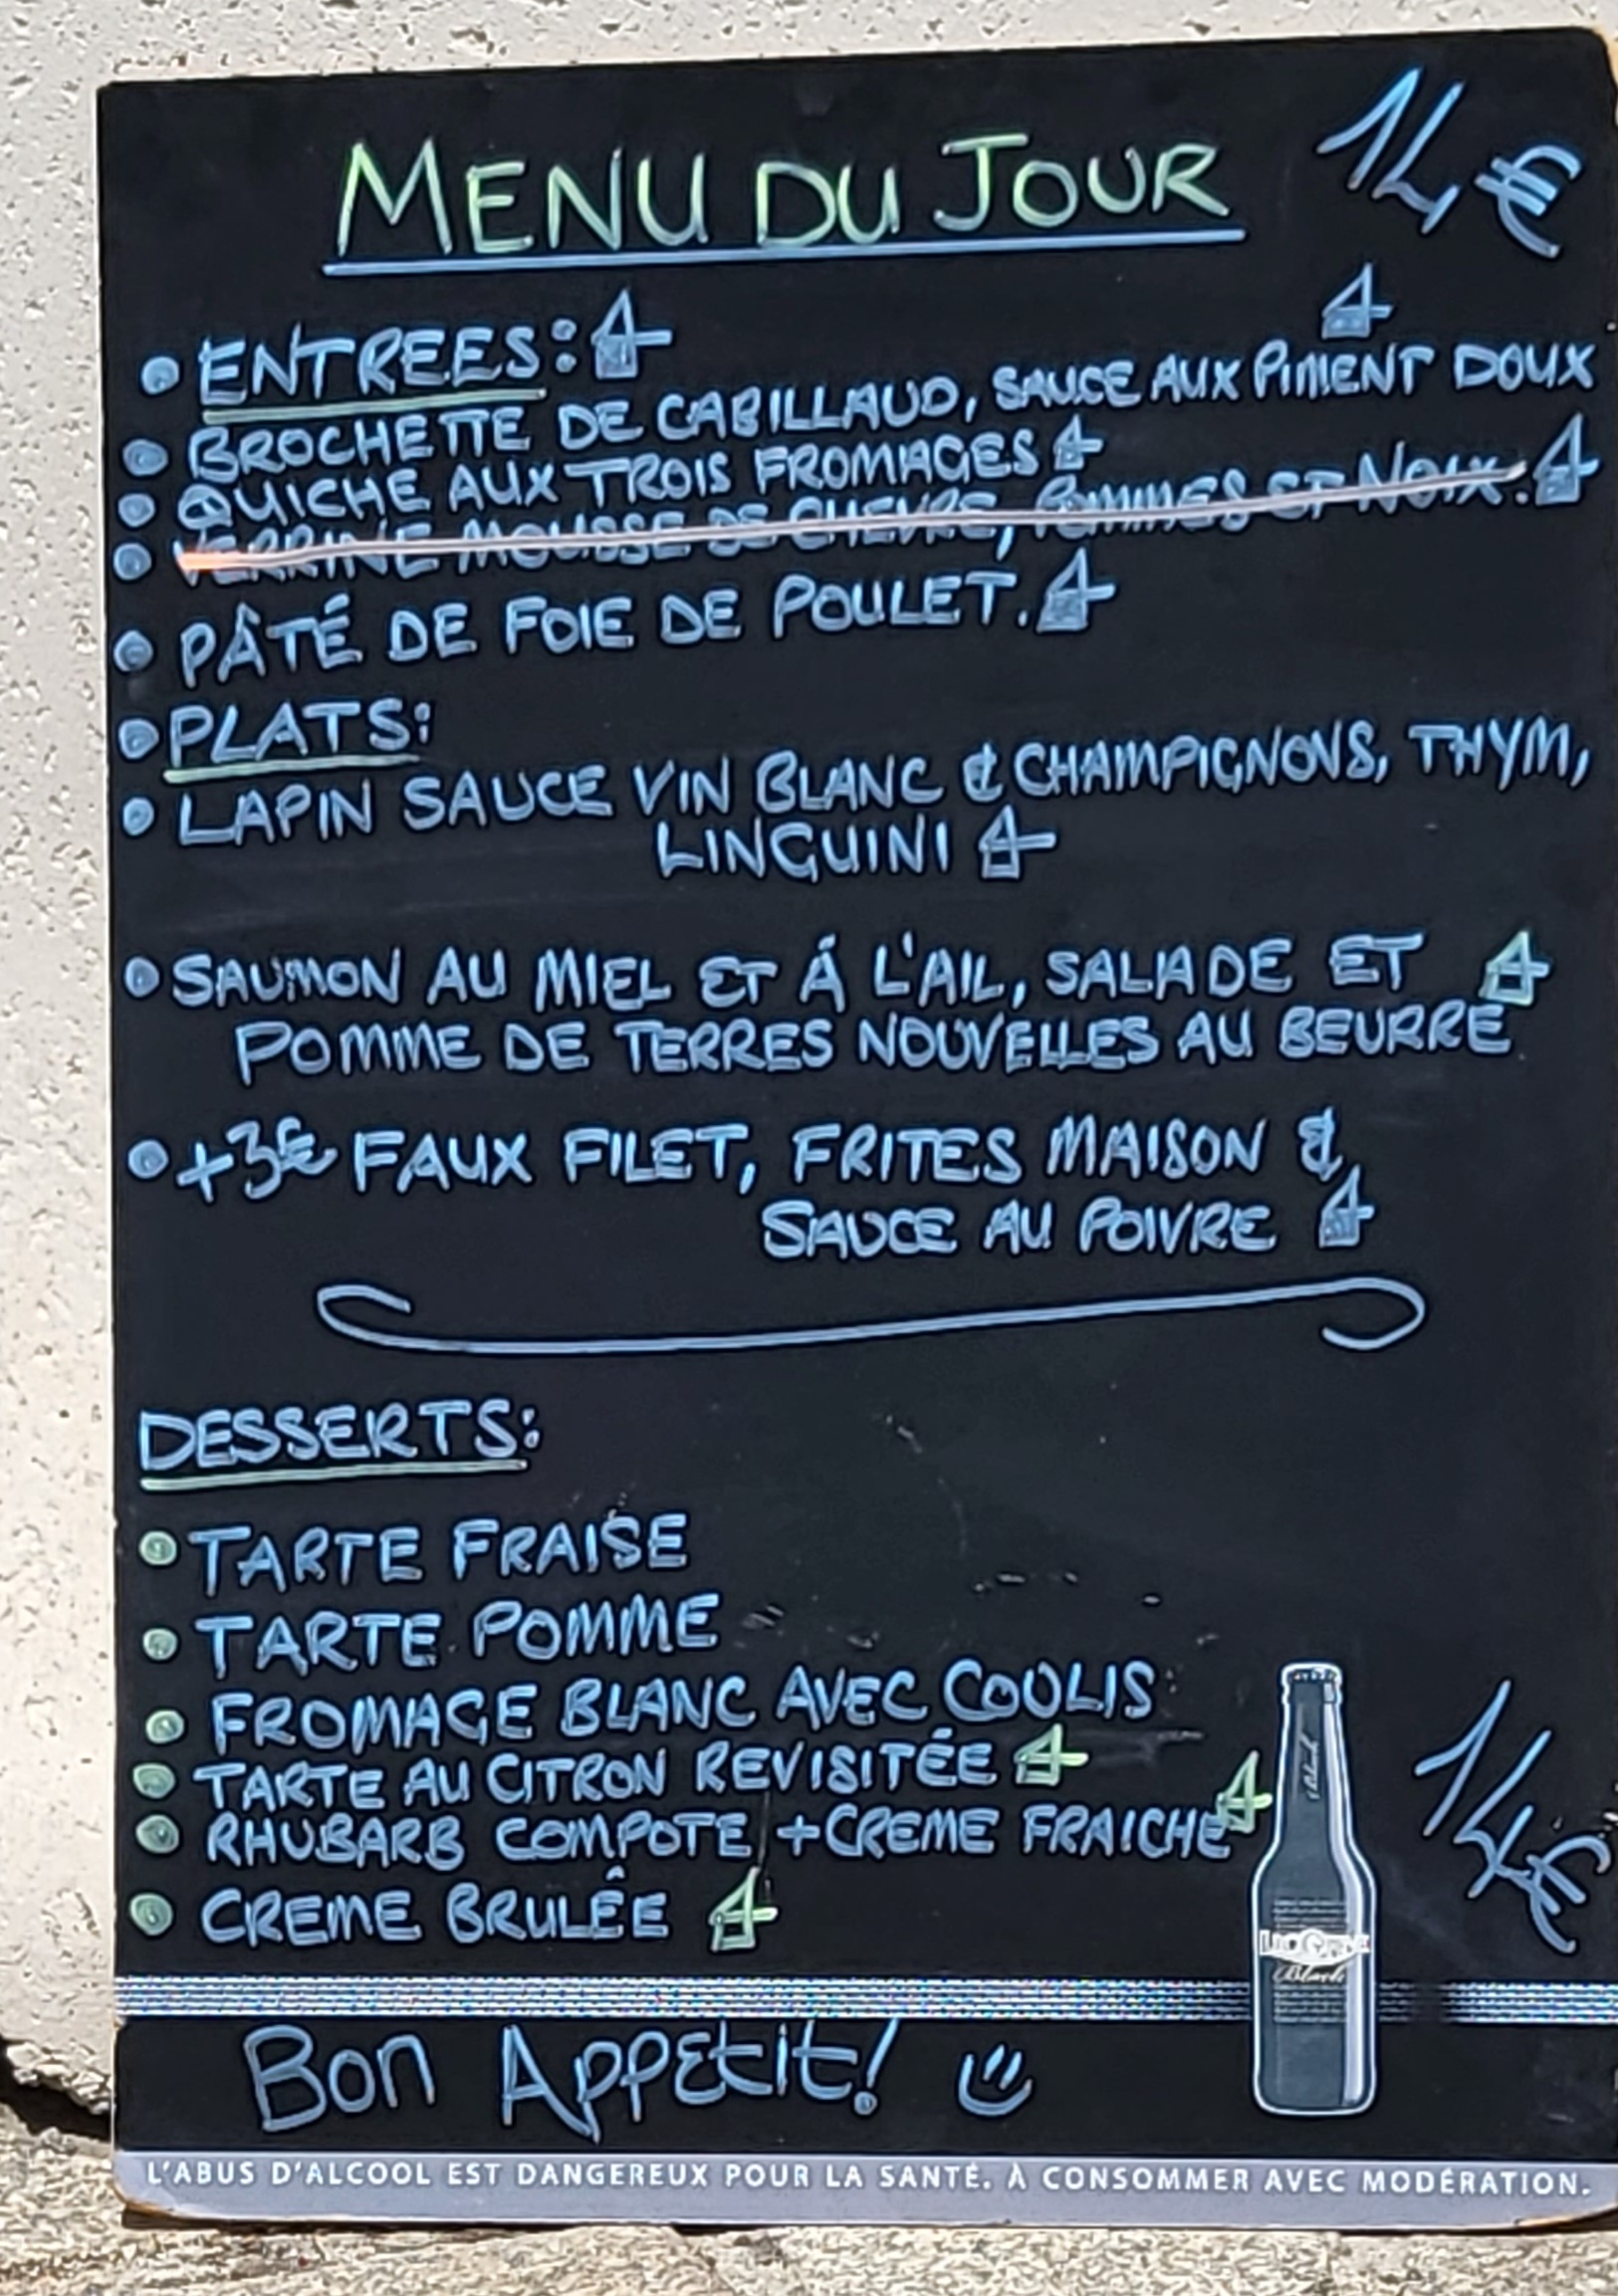 MENU DU JOUR 14€
• ENTREES:
• BROCHETTE DE CABILLAUD, SAUCE AUX PIMENT DOUX
• QUICHE AUX TROIS FROMAGES
• VERRINE MOUSSE DE CHEVRE, POMMES ET NOIX.
• PÂTÉ DE FOIE DE POULET.
• PLATS:
• LAPIN SAUCE VIN BLANC & CHAMPIGNONS, THYM,
LINGUINI
• SAUMON AU MIEL ET Á L'AIL, SALADE ET
POMME DE TERRES NOUVELLES AU BEURRE
• +3€ FAUX FILET, FRITES MAISON &
SAUCE AU POIVRE
DESSERTS:
• TARTE FRAISE
• TARTE POMME
• FROMAGE BLANC AVEC COULIS
• TARTE AU CITRON REVISITÉE
• RHUBARB COMPOTE +CREME FRAICHE
• CREME BRULÊE
14€
LICORNE
Black
Bon Appetit!
L'ABUS D'ALCOOL EST DANGEREUX POUR LA SANTÉ. À CONSOMMER AVEC MODÉRATION.